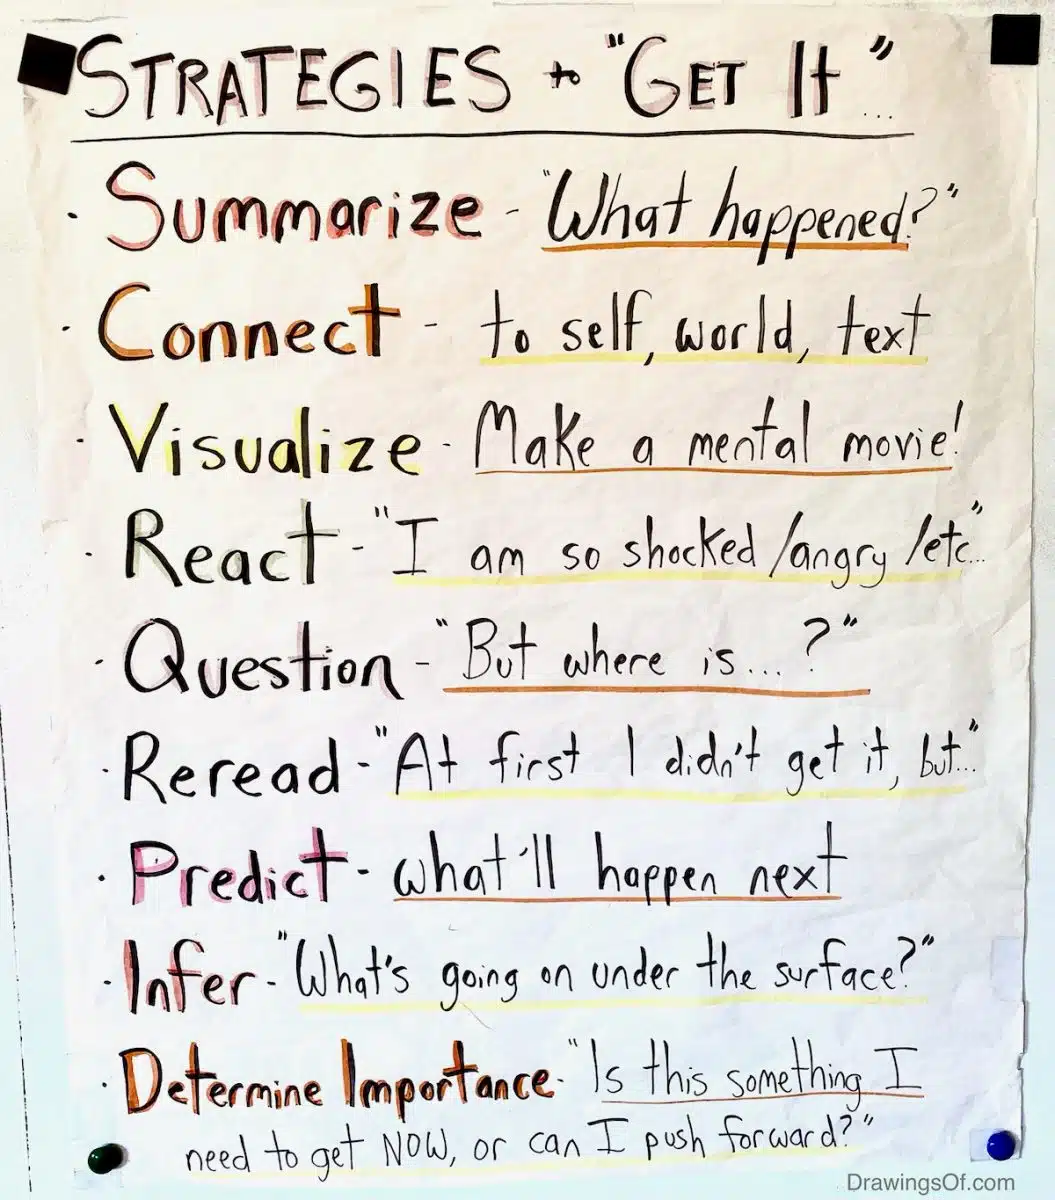 STRATEGIES to "GET It"...
· Summarize - "What happened?"
· Connect - to self, world, text
· Visualize - Make a mental movie!
· React - "I am so shocked/angry/etc..."
· Question - "But where is...?"
· Reread - "At first I didn't get it, but..."
· Predict - what'll happen next
· Infer - "What's going on under the surface?"
· Determine Importance - "Is this something I
need to get NOW, or can I push forward?"
DrawingsOf.com